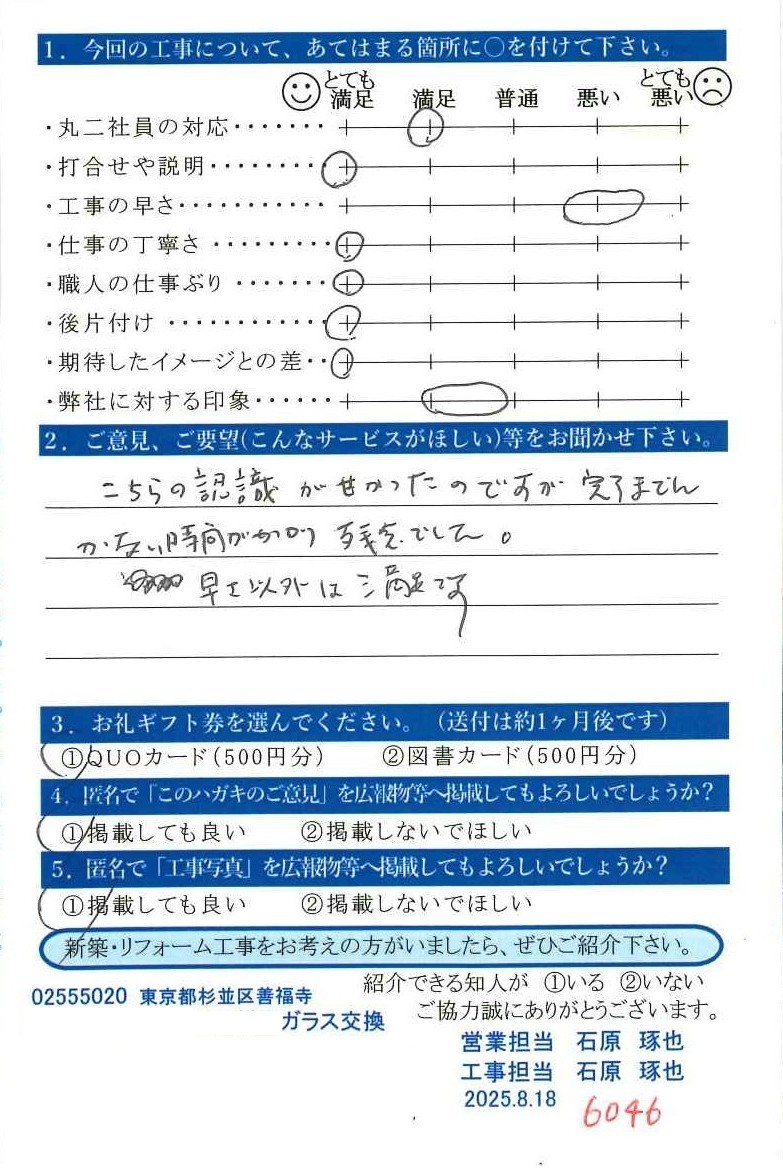 1. 今回の工事について、あてはまる箇所に○を付けて下さい。
とても満足 満足 普通 悪い とても悪い
・丸二社員の対応・・・・・・・・
・打合せや説明・・・・・・・・・
・工事の早さ・・・・・・・・・・・
・仕事の丁寧さ・・・・・・・・・
・職人の仕事ぶり・・・・・・・
・後片付け・・・・・・・・・・・・
・期待したイメージとの差・・
・弊社に対する印象・・・・・・
2. ご意見、ご要望(こんなサービスがほしい)等をお聞かせ下さい。
こちらの認識が甘かったのですが 完了までん
かない時間がかかり 残念でした。
早さ以外は満足です
3. お礼ギフト券を選んでください。(送付は約1ヶ月後です)
①QUOカード(500円分) ②図書カード(500円分)
4. 匿名で「このハガキのご意見」を広報物等へ掲載してもよろしいでしょうか?
①掲載しても良い ②掲載しないでほしい
5. 匿名で「工事写真」を広報物等へ掲載してもよろしいでしょうか?
①掲載しても良い ②掲載しないでほしい
新築・リフォーム工事をお考えの方がいましたら、ぜひご紹介下さい。
紹介できる知人が ①いる ②いない
02555020 東京都杉並区善福寺
ご協力誠にありがとうございます。
ガラス交換
営業担当 石原 琢也
工事担当 石原 琢也
2025.8.18
6046